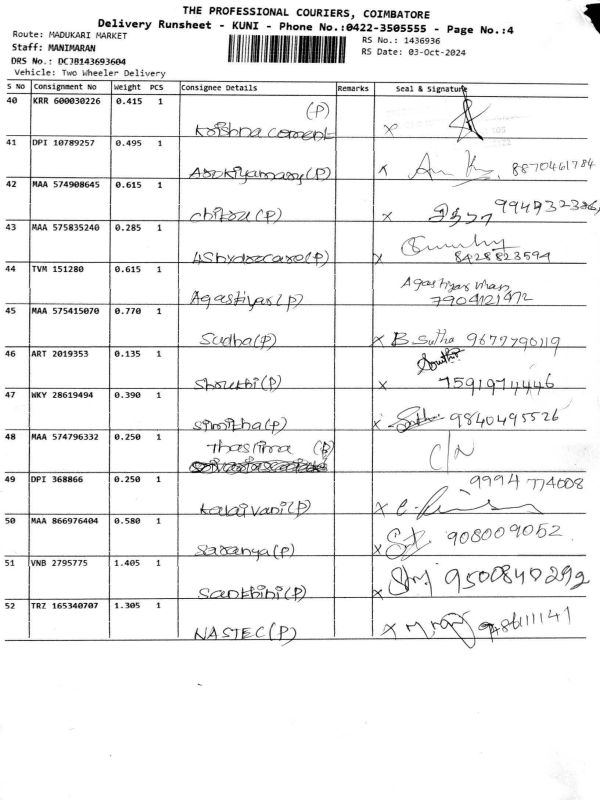 THE PROFESSIONAL COURIERS, COIMBATORE
Delivery Runsheet - KUNI - Phone No.:0422-3505555 - Page No.:4
Route: MADUKARI MARKET
RS No.: 1436936
Staff: MANIMARAN
RS Date: 03-Oct-2024
DRS No.: DCJB143693604
Vehicle: Two Wheeler Delivery
S No Consignment No Weight PCS Consignee Details Remarks Seal & Signature
40 KRR 600030226 0.415 1
(P)
Krishna cement x
41 DPI 10789257 0.495 1
Arokiyamary(P) x 8870461784
42 MAA 574908645 0.615 1
chitra(P) x
43 MAA 575835240 0.285 1
(P) x 8428823594
44 TVM 151280 0.615 1
Agastiyar(P) Agastiyar
7904121472
45 MAA 575415070 0.770 1
Sudha(P) x B Sutha 9677790119
46 ART 2019353 0.135 1
Shruthi(P) x 7591974446
47 WKY 28619494 0.390 1
simitha(P) x 9840495526
48 MAA 574796332 0.250 1
Thaslima (P) C/N
49 DPI 368866 0.250 1
9994774008
kalaivani(P) x
50 MAA 866976404 0.580 1
Saranya(P) x 908009052
51 VNB 2795775 1.405 1
Santhini(P) x 9500840292
52 TRZ 165340707 1.305 1
NASTEC(P) x